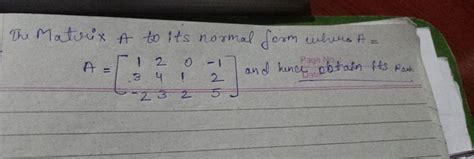 The Matrix A to its normal form where A =
A = [ 1 2 0 -1
3 4 1 2
-2 3 2 5 ] and hence obtain its Rank
Page No.
Date